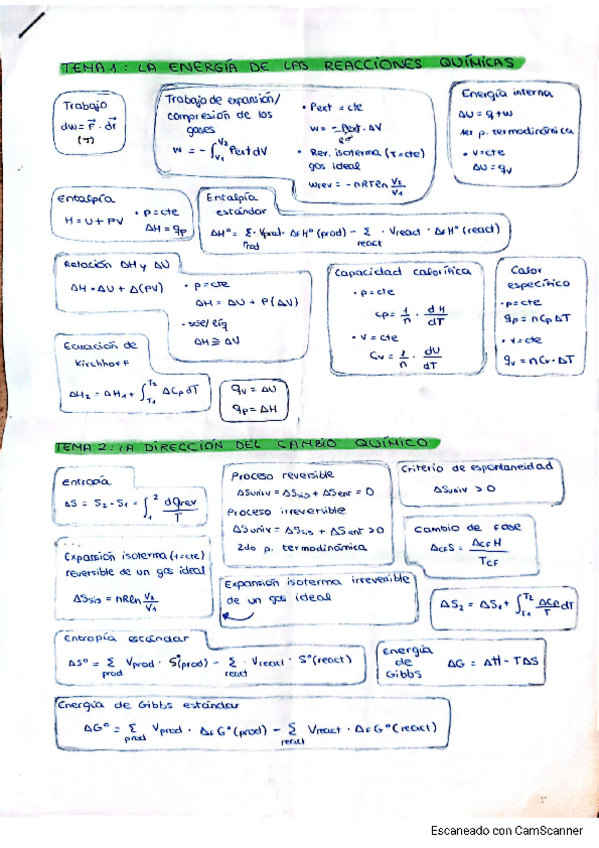 TEMA 1: LA ENERGÍA DE LAS REACCIONES QUÍMICAS
Trabajo
dw = F⃗ · dr⃗
(J)
Trabajo de expansión/
compresión de los
gases
w = -∫_{V1}^{V2} Pext dV
• Pext = cte
w = -Pext · ΔV
• Rev. isoterma (T=cte)
gas ideal
wrev = -nRTln V2/V1
Energía interna
ΔU = q + w
1er p. termodinámica
• V=cte
ΔU = qv
Entalpía
H = U + PV
• p=cte
ΔH = qp
Entalpía
estándar
ΔHº = Σprod νprod · ΔfHº (prod) - Σreact νreact · ΔfHº (react)
Relación ΔH y ΔU
ΔH = ΔU + Δ(PV)
• p=cte
ΔH = ΔU + P(ΔV)
• sól/líq
ΔH ≅ ΔU
Capacidad calorífica
• p=cte
Cp = 1/n · dH/dT
• V=cte
Cv = 1/n · dU/dT
Calor
específico
• p=cte
qp = nCpΔT
• V=cte
qv = nCv·ΔT
Ecuación de
Kirchhoff
ΔH2 = ΔH1 + ∫_{T1}^{T2} ΔCp dT
qv = ΔU
qp = ΔH
TEMA 2: LA DIRECCIÓN DEL CAMBIO QUÍMICO
Entropía
ΔS = S2 - S1 = ∫_1^2 dqrev/T
Proceso reversible
ΔSuniv = ΔSsis + ΔSent = 0
Proceso irreversible
ΔSuniv = ΔSsis + ΔSent > 0
2do p. termodinámica
Criterio de espontaneidad
ΔSuniv > 0
Cambio de fase
ΔCFS = ΔCFH/TCF
Expansión isoterma (T=cte)
reversible de un gas ideal
ΔSsis = nRln V2/V1
Expansión isoterma irreversible
de un gas ideal
ΔS2 = ΔS1 + ∫_{T1}^{T2} ΔCp/T dT
Entropía estándar
ΔSº = Σprod νprod · Sº(prod) - Σreact · νreact · Sº(react)
Energía
de
Gibbs
ΔG = ΔH - TΔS
Energía de Gibbs estándar
ΔGº = Σprod νprod · ΔfGº(prod) - Σreact νreact · ΔfGº(react)
Escaneado con CamScanner